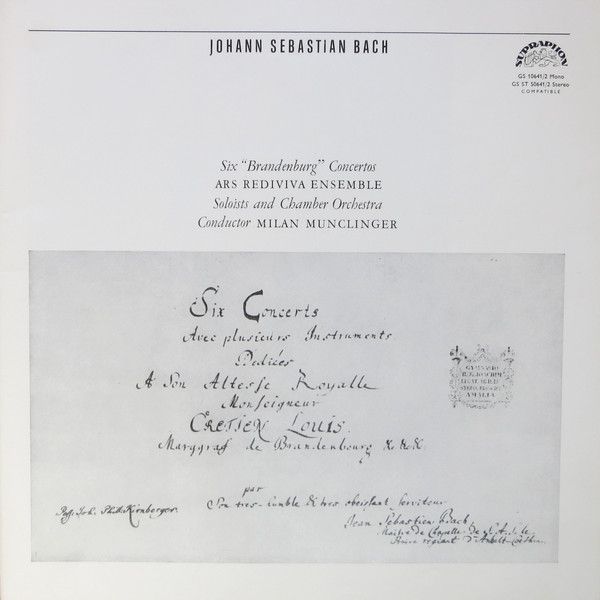 JOHANN SEBASTIAN BACH
SUPRAPHON
GS 10641/2 Mono
GS ST 50641/2 Stereo
COMPATIBLE
Six "Brandenburg" Concertos
ARS REDIVIVA ENSEMBLE
Soloists and Chamber Orchestra
Conductor MILAN MUNCLINGER
Six Concerts
Avec plusieurs Instruments
Dediées
A Son Altesse Royalle
Monseigneur
CRETIEN LOUIS.
Marggraf de Brandenbourg &.&.&.
par
Son tres-humble & tres obeissant serviteur
Jean Sebastien Bach,
Maitre de Chapelle de S. A. S. le
Prince regnant d'Anhalt-Coethen.
Kirnberger.
AMALIA